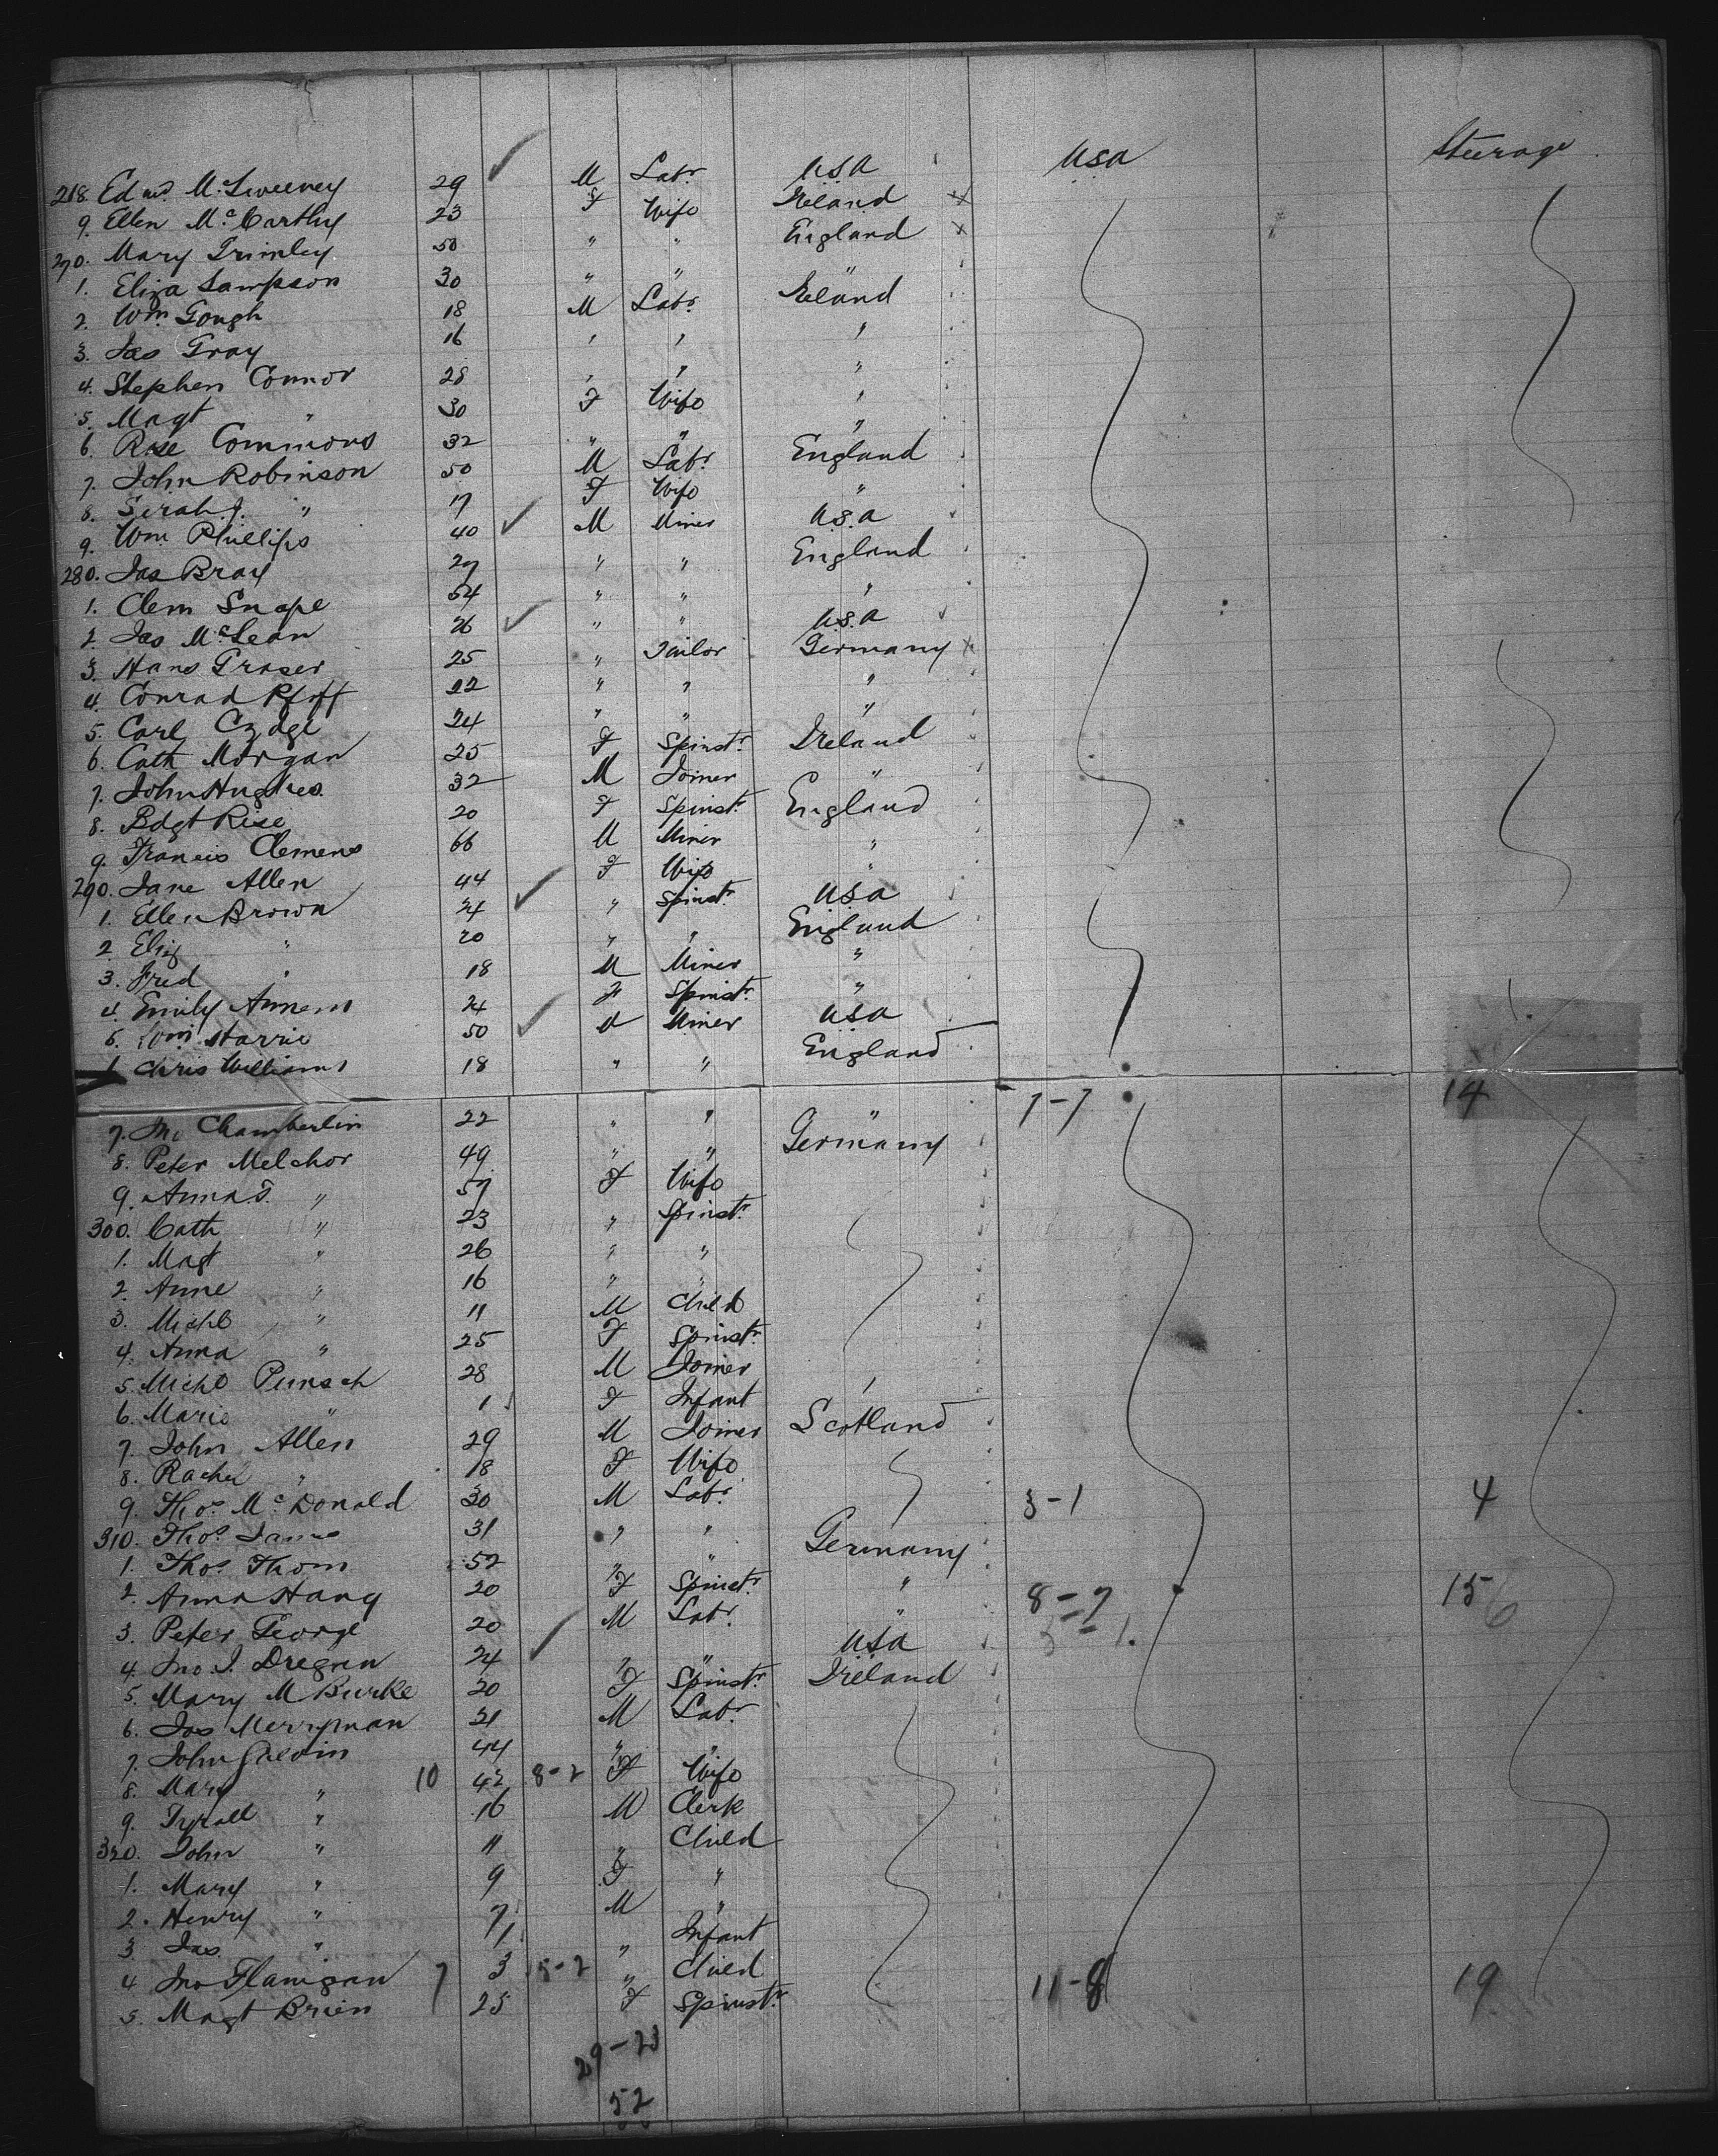 218. Edwd. McSweeney 29 M Labr. U.S.A USA Steerage
9. Ellen McCarthy 23 F Wife Ireland
270. Mary Grimley 50 " " England
1. Eliza Sampson 30 " " "
2. Wm Gough 18 M Labr. Ireland
3. Jas Gray 16 " " "
4. Stephen Connor 28 " " "
5. Magt " 30 F Wife "
6. Rose Commons 32 " " "
7. John Robinson 50 M Labr. England
8. Sarah J. " 17 F Wife "
9. Wm Phillips 40 M Miner U.S.A
280. Jas Bray 27 " " England
1. Clem Snape 54 " " "
2. Jas McLean 26 " " U.S.A
3. Hans Graser 25 " Tailor Germany
4. Conrad 22 " " "
5. Carl 24 " " "
6. Cath Morgan 25 F Spinstr. Ireland
7. John Hughes 32 M Joiner "
8. Bdgt Rise 20 F Spinstr. England
9. Francis Clemens 66 M Miner "
290. Jane Allen 44 F Wife "
1. Ellen Brown 24 " Spinstr. U.S.A
2. Eliz " 20 " " England
3. Fred " 18 M Miner "
4. Emily 24 F Spinstr. "
5. Wm Harris 50 M Miner U.S.A
Chris Williams 18 " " England
7. Jno Chamberlin 22 " " " 7-7 14
8. Peter Melchor 49 " " Germany
9. Anna T. " 57 F Wife
300. Cath " 23 " Spinstr.
1. Magt " 26 " "
2. Anne " 16 " "
3. Michl " 11 M Child
4. Anna " 25 F Spinstr.
5. Michl Punsch 28 M Joiner
6. Marie " 1 F Infant
7. John Allen 29 M Joiner Scotland
8. Rachel " 18 F Wife
9. Thos. McDonald 30 M Labr. 3-1 4
310. Thos. James 31 " "
1. Thos. Thom 52 " " Germany
2. Anna Hang 20 F Spinstr. " 8-7 15 6
3. Peter George 20 M Labr. " 3-1.
4. Jno J. Dregnen 24 " " U.S.A
5. Mary M Burke 20 F Spinstr. Ireland
6. Jas Merryman 21 M Labr.
7. John Galvin 44 " "
8. Mary " 10 42 8-2 F Wife
9. Tyrall " 16 M Clerk
320. John " 11 " Child
1. Mary " 9 F "
2. Henry " 7 M "
3. Jas " 1 " Infant
4. Jno Flanigan 7 3 5-2 " Child 11-8 19
5. Magt Brien 25 F Spinstr.
29-23
52